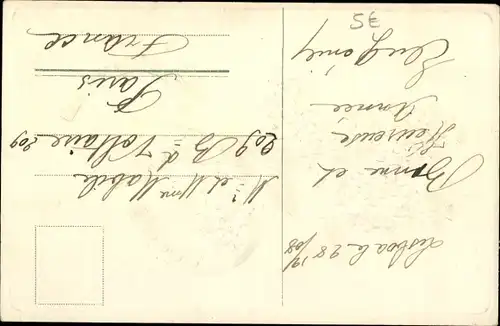 Lisboa le 28 12/08
Bonne et
Heureuse
Année
Eugénie
Mr et Mme Mabile
209 Bd Voltaire 209
Paris
France
5E